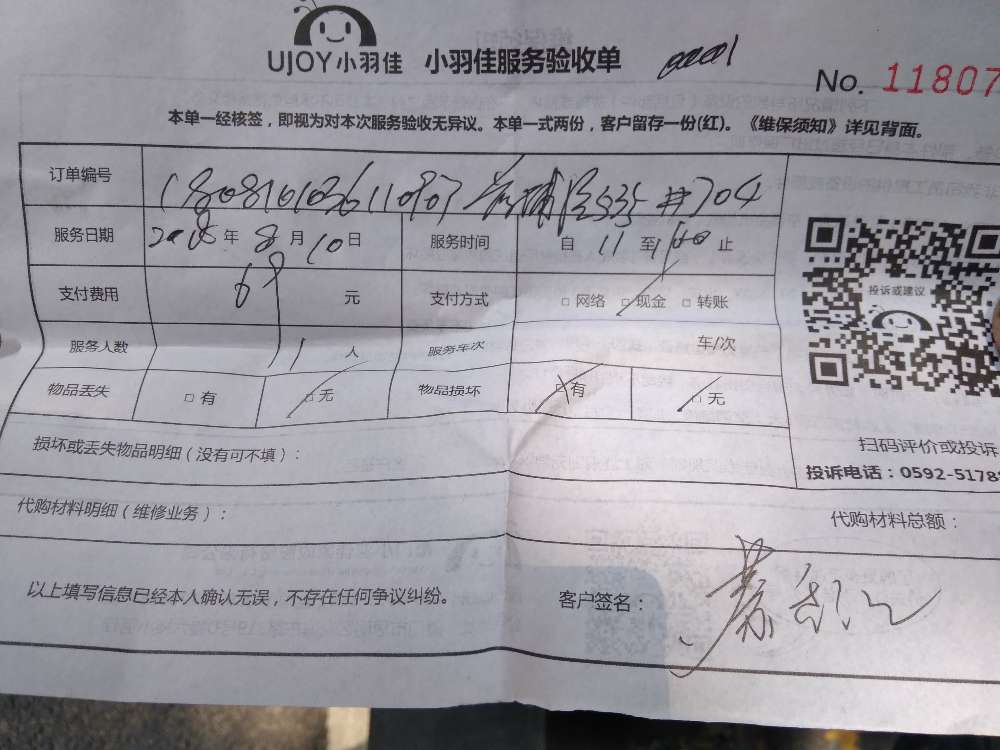 UJOY小羽佳 小羽佳服务验收单
No. 11807
本单一经核签，即视为对本次服务验收无异议。本单一式两份，客户留存一份(红)。《维保须知》详见背面。
订单编号 #704
服务日期 2018年8月10日 服务时间 自 11 至 止
支付费用 69 元 支付方式 □网络 □现金 □转账
服务人数 1 人 服务车次 车/次
物品丢失 □有 □无 物品损坏 □有 □无
投诉或建议
损坏或丢失物品明细（没有可不填）：
扫码评价或投诉
投诉电话：0592-5178
代购材料明细（维修业务）：
代购材料总额：
以上填写信息已经本人确认无误，不存在任何争议纠纷。
客户签名：